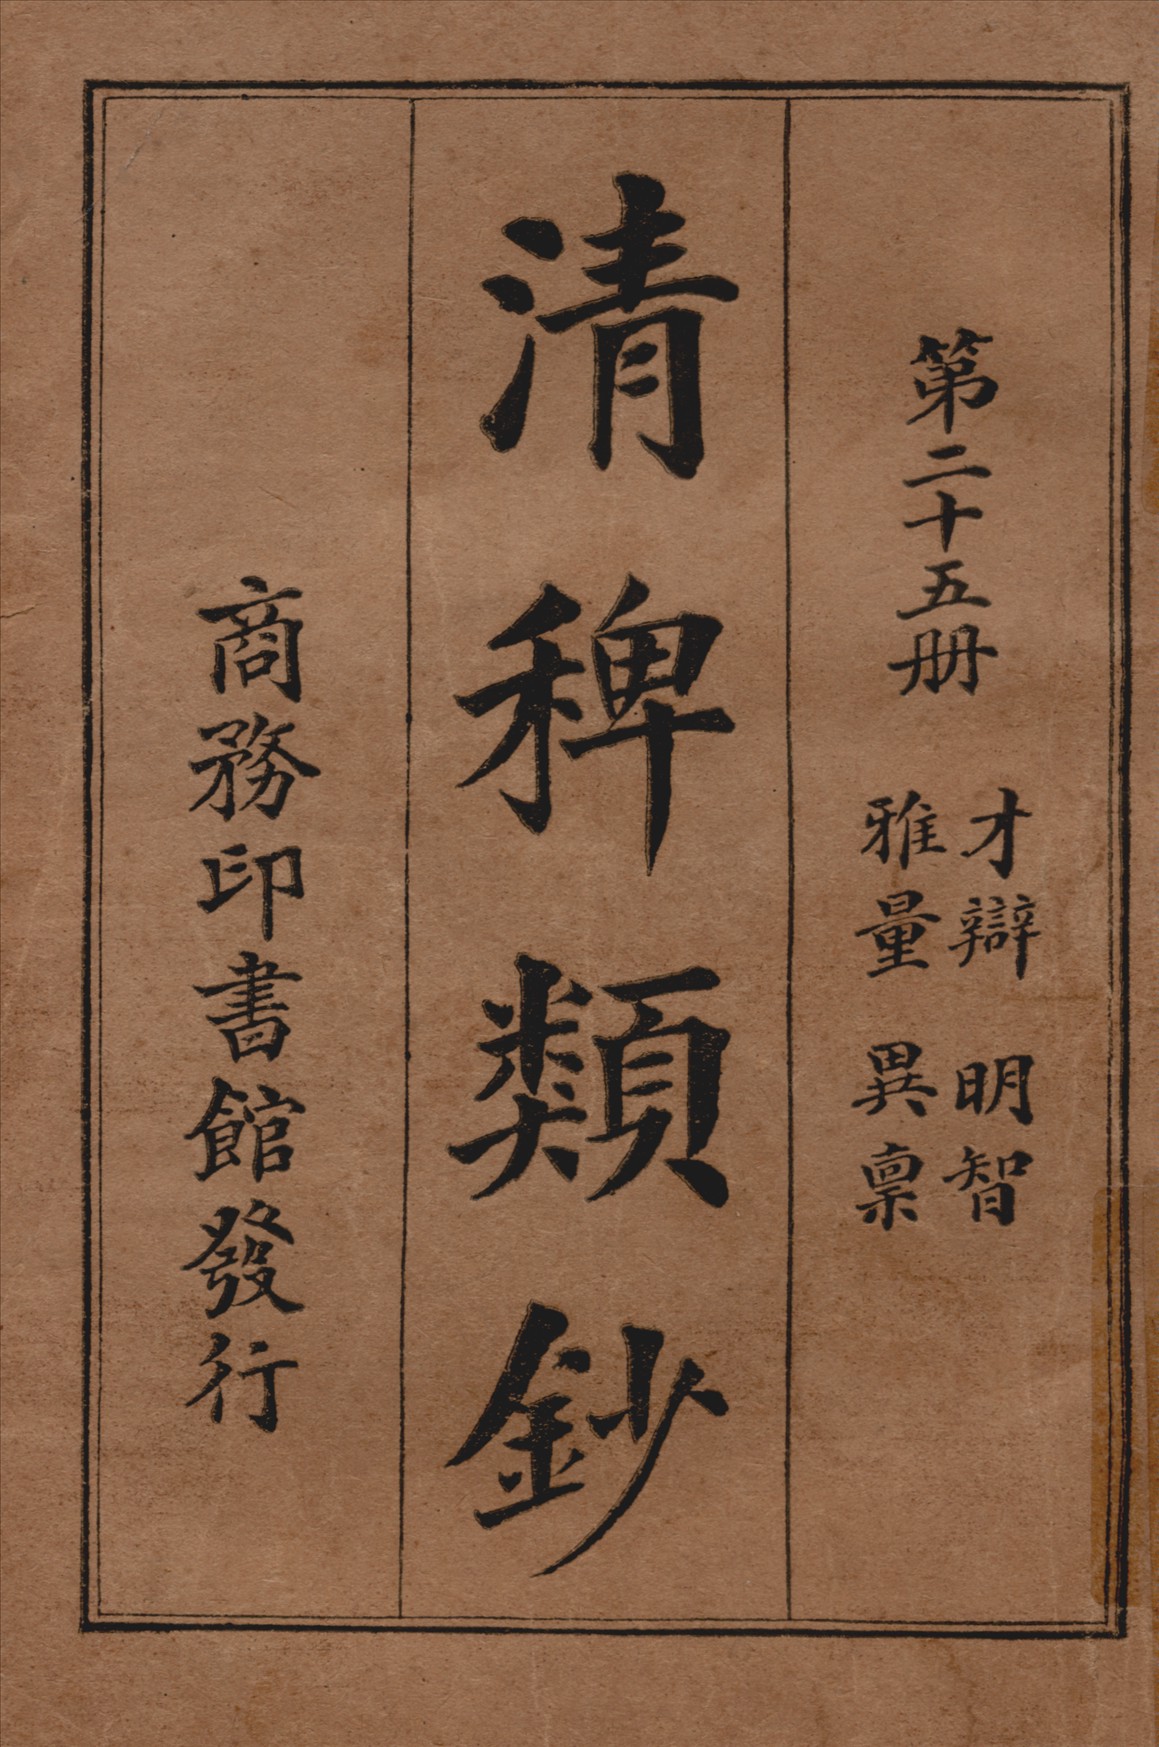 第二十五册
才辯 明智
雅量 異禀
清稗類鈔
商務印書館發行